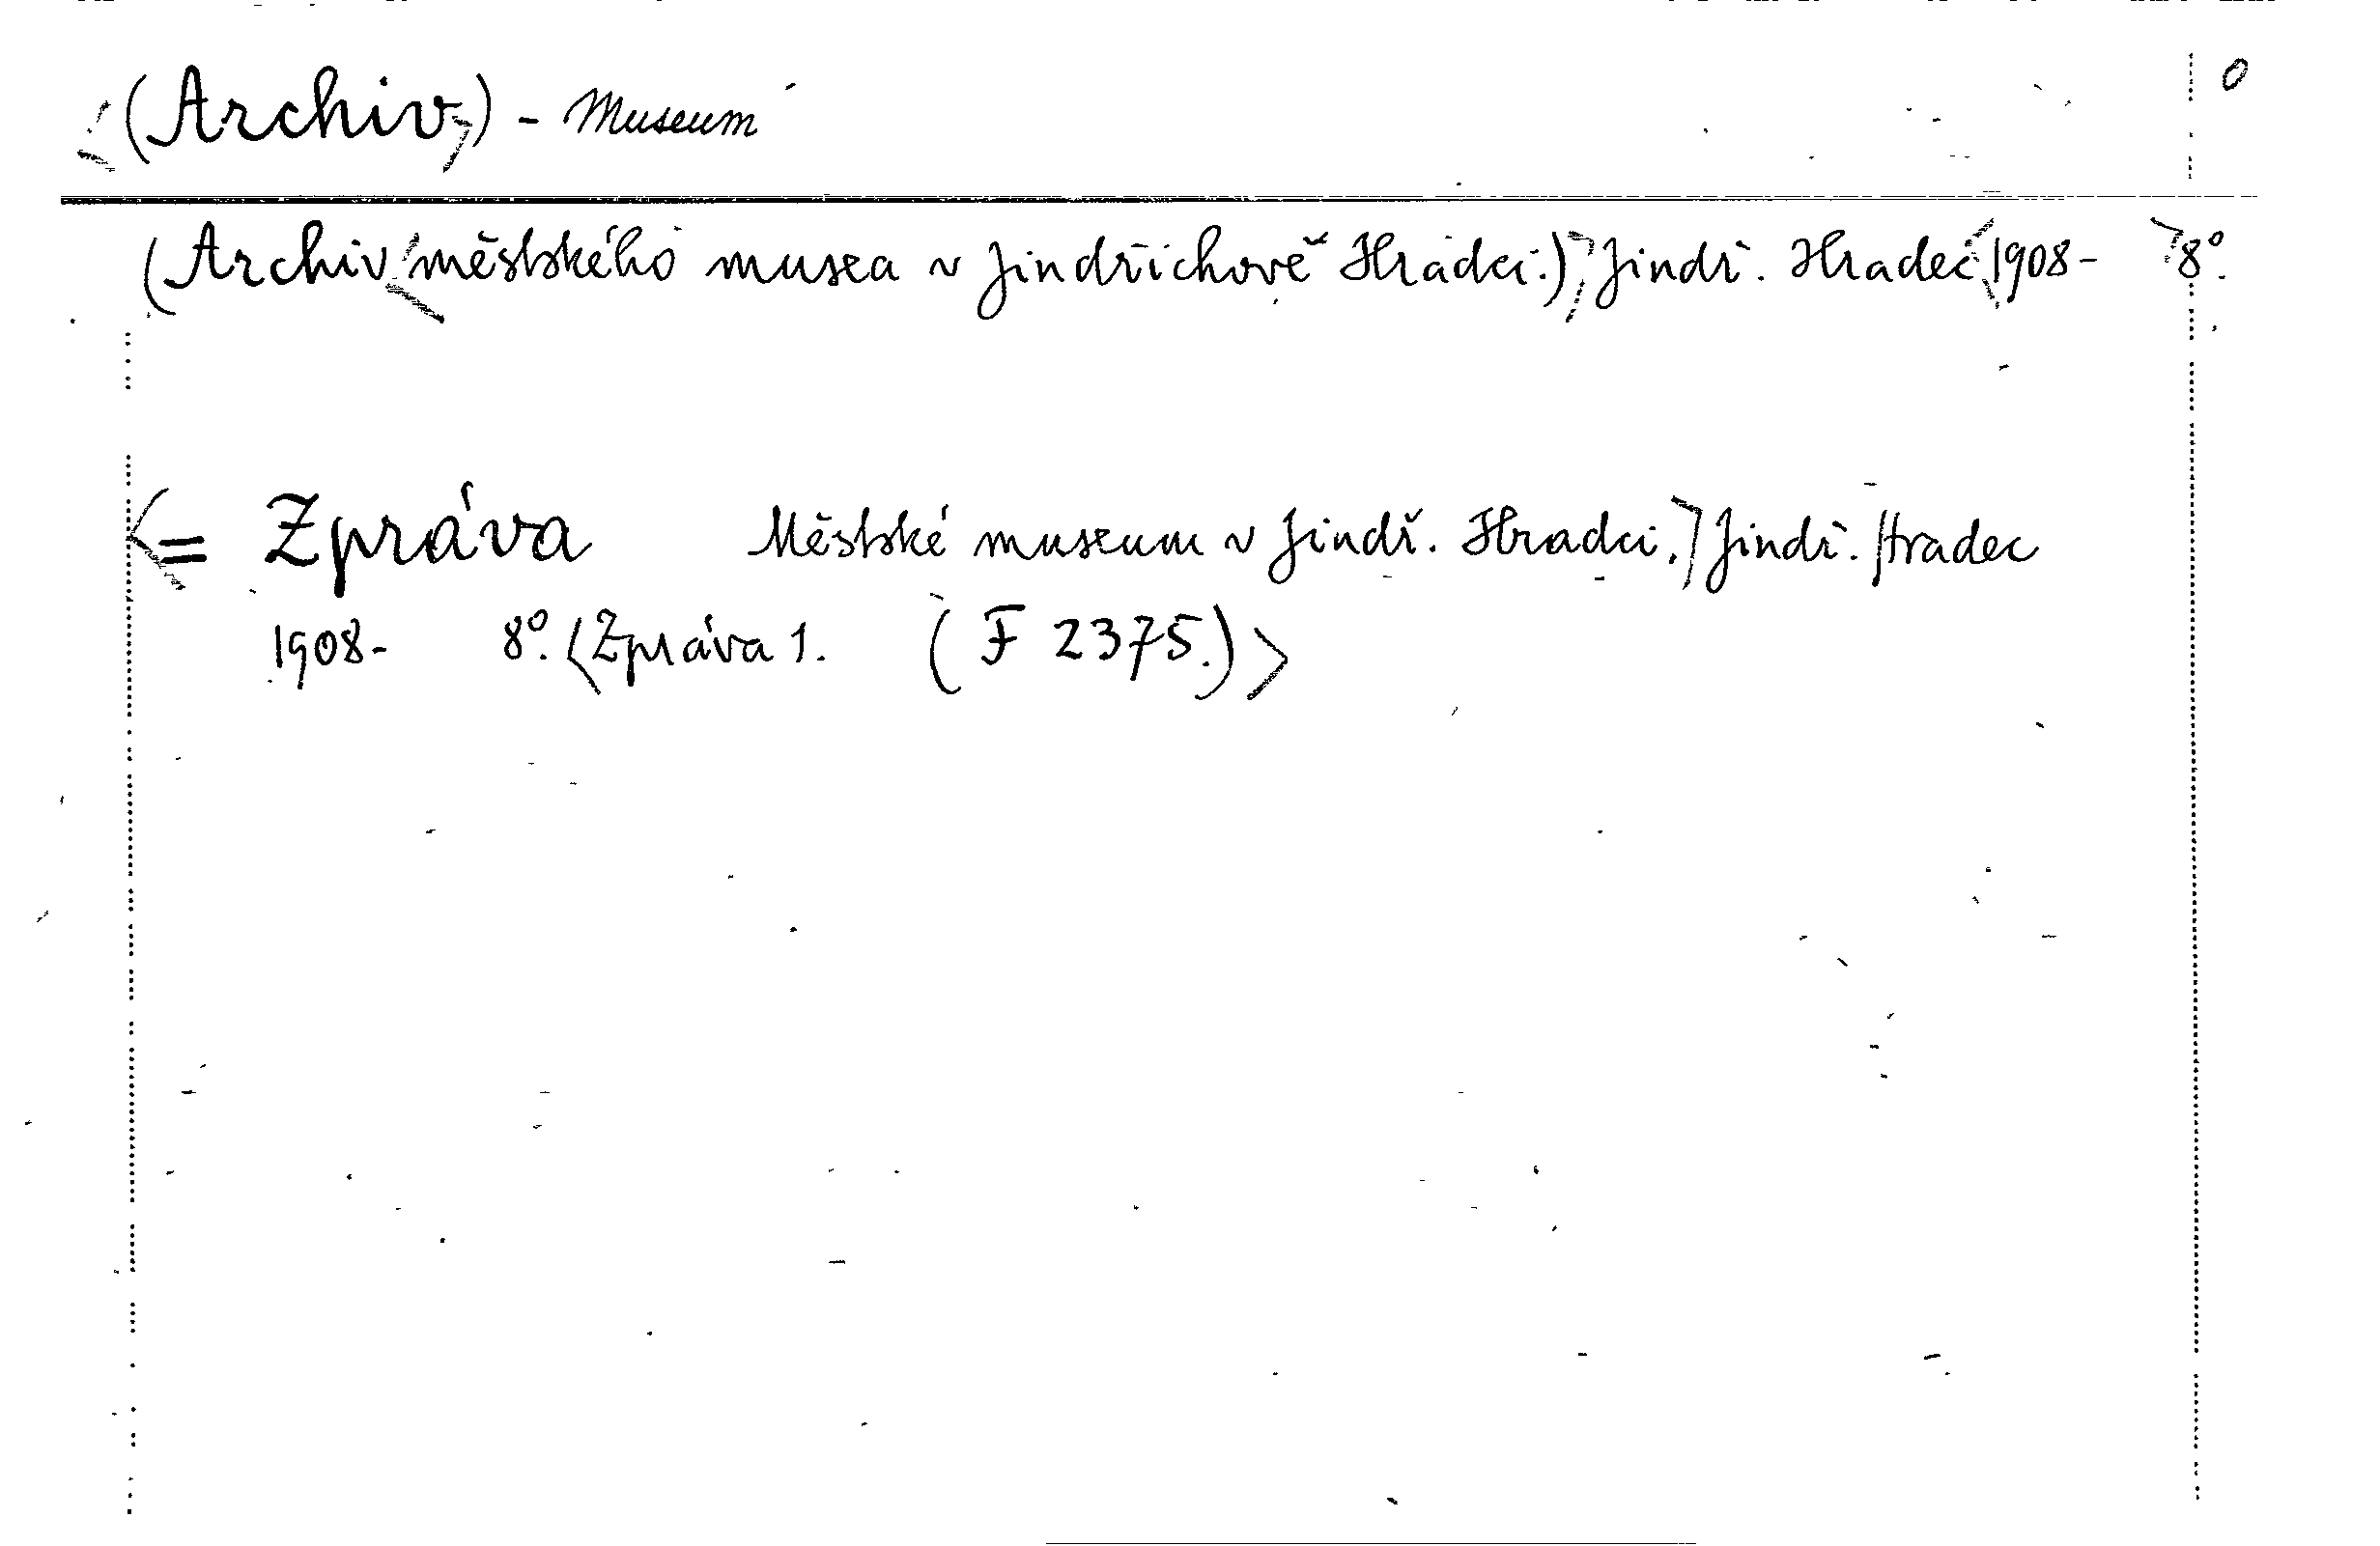 <(Archiv>) - Museum 0
(Archiv <městského musea v Jindřichově Hradci.)> Jindř. Hradec <1908- > 8°.
<= Zpráva Městské museum v Jindř. Hradci.> Jindř. Hradec
1908- 8°. <Zpráva 1. (F 2375.)>